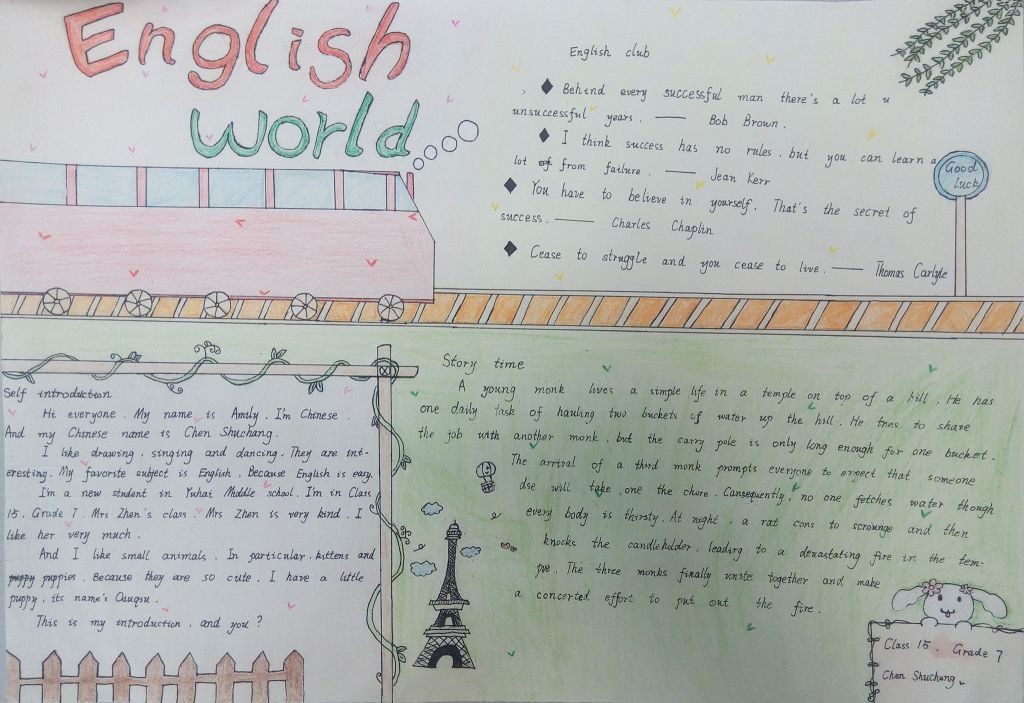 English
World
English club
◆ Behind every successful man there's a lot u
unsuccessful years. —— Bob Brown.
◆ I think success has no rules. but you can learn a
lot of from failure. —— Jean Kerr
◆ You have to believe in yourself. That's the secret of
success. —— Charles Chaplin
◆ Cease to struggle and you cease to live. —— Thomas Carlyle
Good
luck
Self introduction
Hi everyone. My name is Amily. I'm Chinese.
And my Chinese name is Chen Shuchang.
I like drawing, singing and dancing. They are int-
eresting. My favorite subject is English. Because English is easy.
I'm a new student in Yuhai Middle school. I'm in Class
15. Grade 7. Mrs Zhen's class. Mrs Zhen is very kind. I
like her very much.
And I like small animals. In particular, kittens and
puppy puppies. Because they are so cute. I have a little
puppy, its name's
This is my introduction, and you?
Story time
A young monk lives a simple life in a temple on top of a hill. He has
one daily task of hauling two buckets of water up the hill. He tries to share
the job with another monk, but the carry pole is only long enough for one bucket.
The arrival of a third monk prompts everyone to expect that someone
else will take one the chore. Consequently, no one fetches water though
every body is thirsty. At night, a rat cons to scrounge and then
knocks the candleholder, leading to a devastating fire in the tem-
ple. The three monks finally unite together and make
a concerted effort to put out the fire.
Class 15. Grade 7
Chen Shuchang